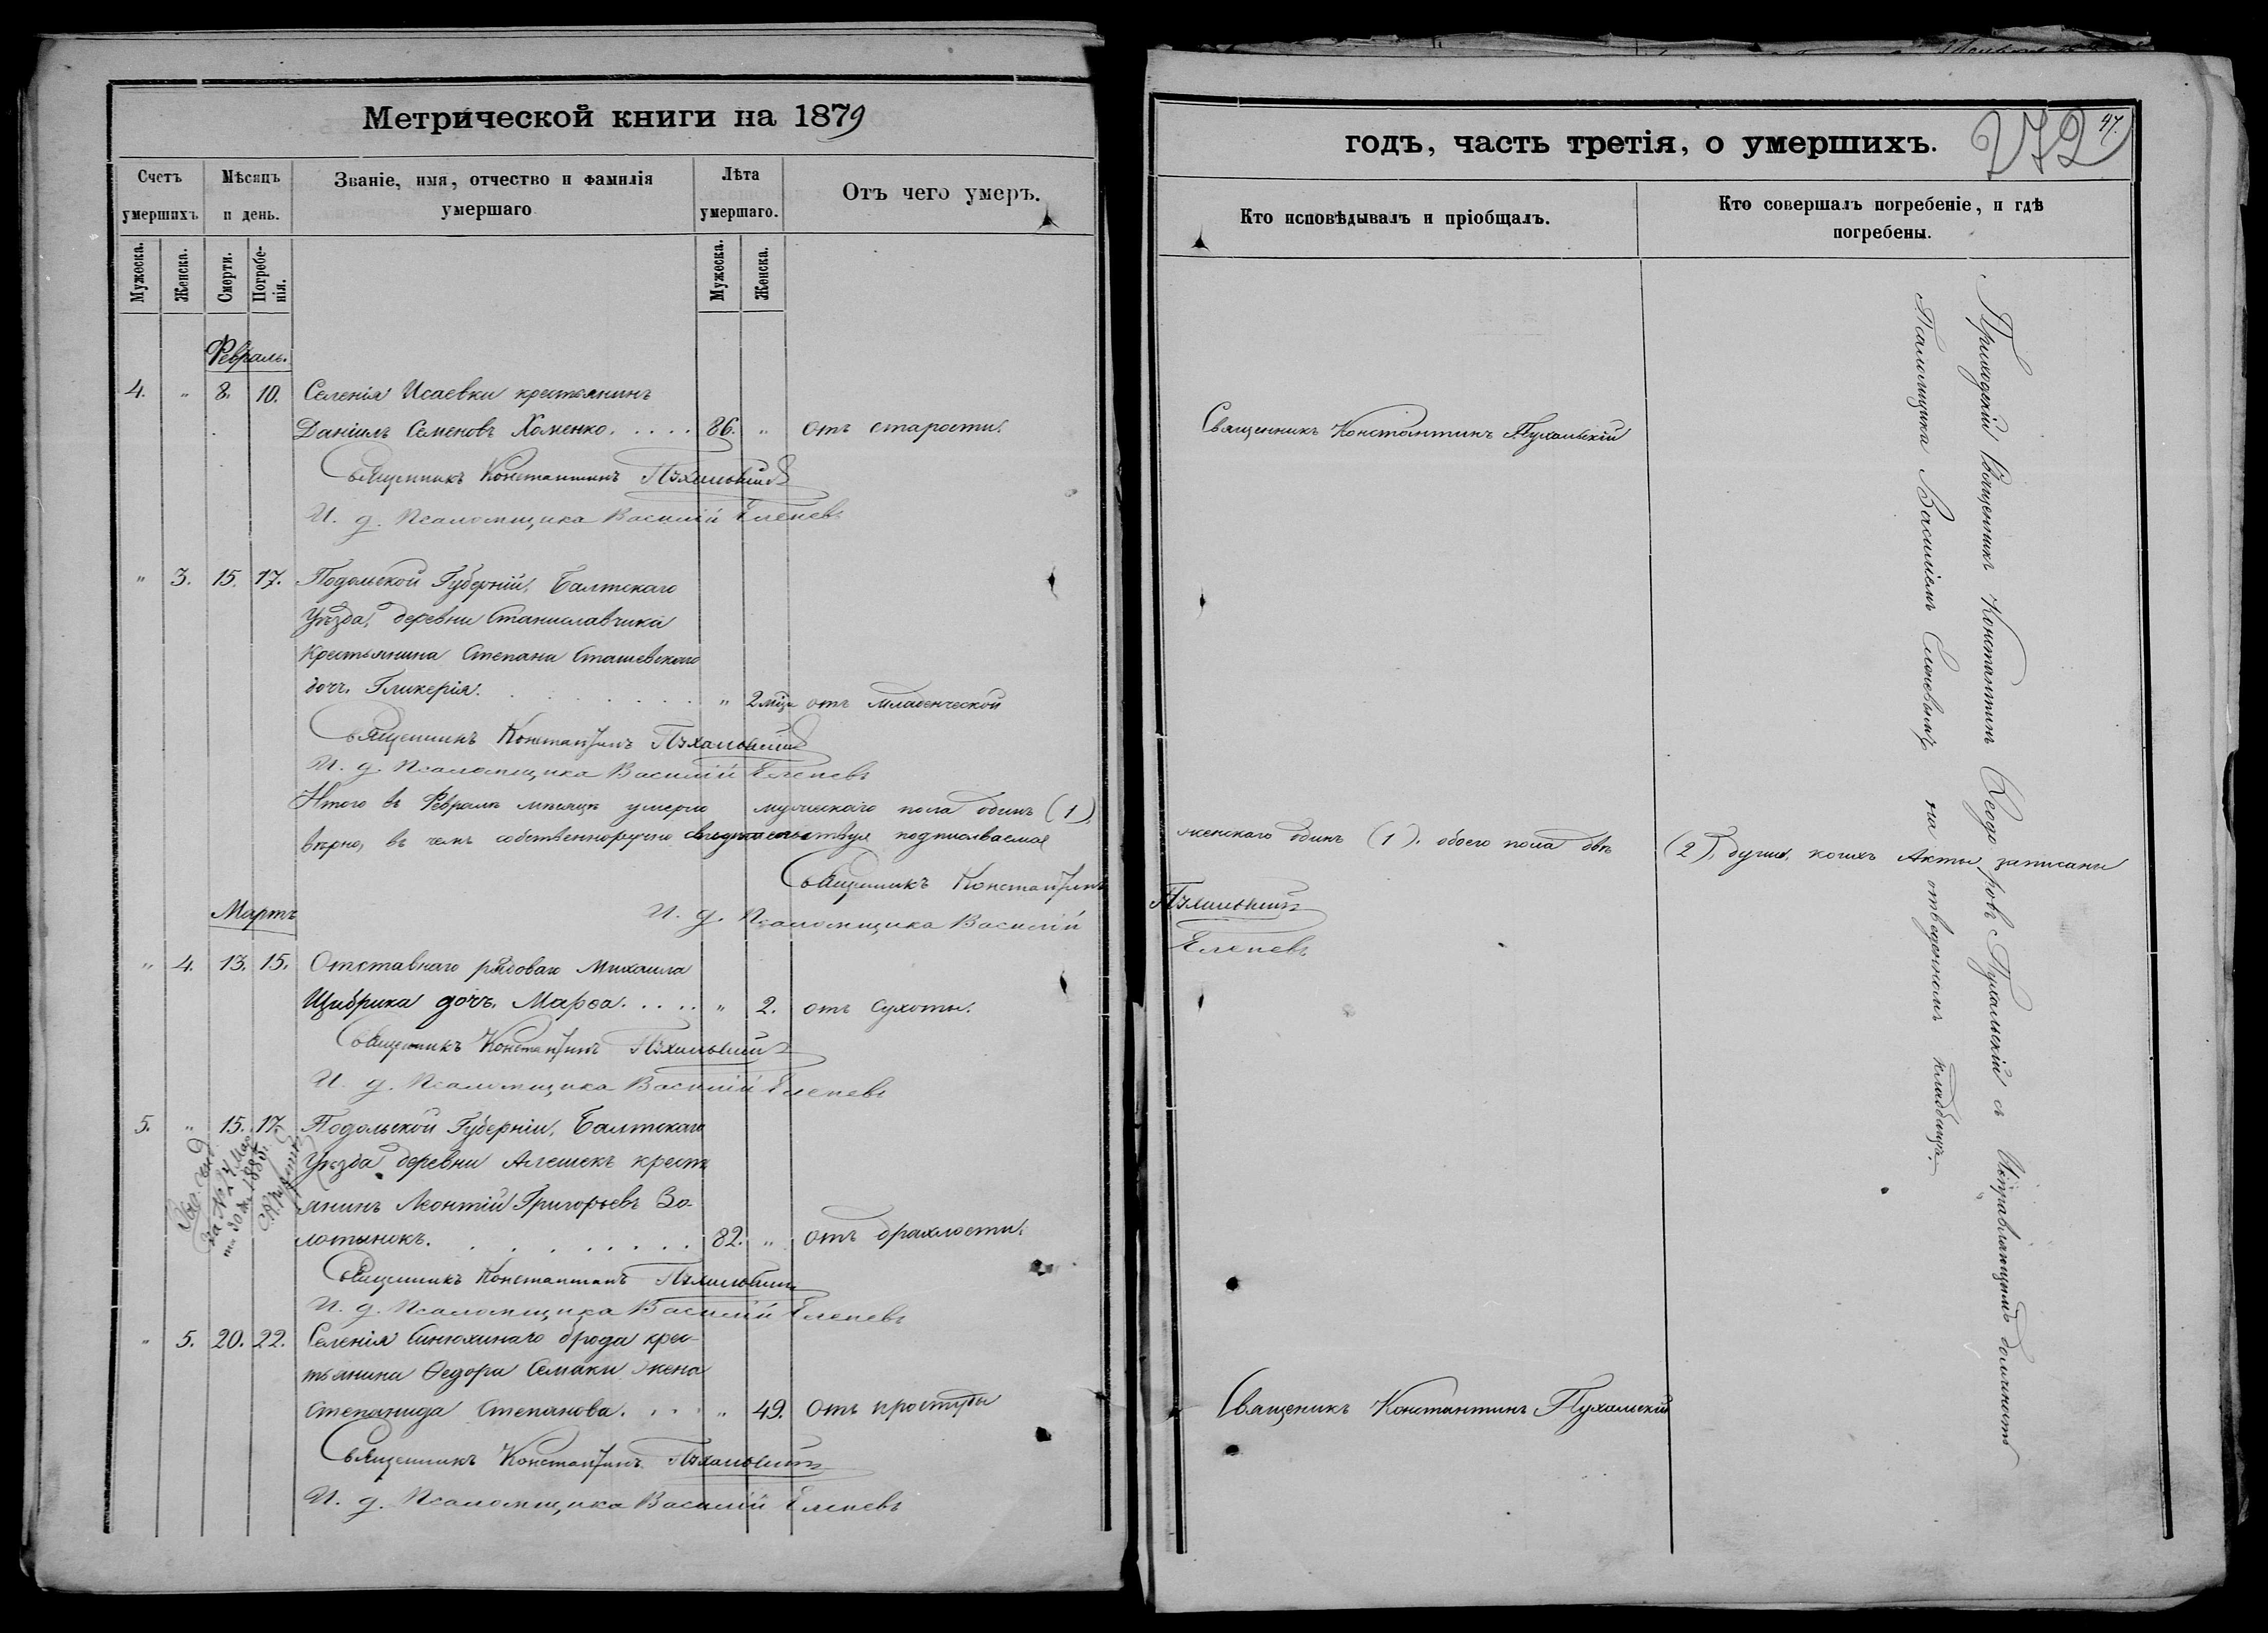 Метрической книги на 1879
Счетъ умершихъ
Мѣсяцъ и день.
Званіе, имя, отчество и фамилія умершаго
Лѣта умершаго.
Отъ чего умеръ.
Мужеска.
Женска.
Смерти.
Погребенія.
Мужеска.
Женска.
Февраль.
4. " 8. 10. Селенія Исаевки крестьянинъ
Даніилъ Семеновъ Хоменко. . . . . 86. " отъ старости.
Священникъ Константинъ Пухальскій
И. д. Псаломщика Василій Слепевъ
" 3. 15. 17. Подольской Губерніи, Балтскаго
Уѣзда, деревни Станиславчика
Крестьянина Степана Сташевскаго
дочь Гликерія. " 2 мца отъ младенческой
Священникъ Константинъ Пухальскій
И. д. Псаломщика Василій
Итого въ Февралѣ мѣсяцѣ умерло мужескаго пола одинъ (1),
вѣрно, въ чемъ собственноручно свидѣтельствуя подписываемся
Священникъ Константинъ
И. д. Псаломщика Василій
Мартъ
" 4. 13. 15. Отставнаго рядоваго Михаила
Щибрика дочь Марѳа. . . . . " 2. отъ сухоты.
Священникъ Константинъ Пухальскій
И. д. Псаломщика Василій
5. " 15. 17. Подольской Губерніи, Балтскаго
Уѣзда деревни Алешекъ кресть
янинъ Леонтій Григорьевъ Зо-
лотынокъ. 82. " отъ дряхлости.
за № 24
1885 г.
Священникъ Константинъ Пухальскій
И. д. Псаломщика Василій
" 5. 20. 22. Селенія Синюхинаго брода крес-
тьянина Ѳедора Семаки жена
Степанида Степанова. . . . " 49. отъ простуды
Священникъ Константинъ Пухальскій
И. д. Псаломщика Василій
годъ, часть третія, о умершихъ.
272
47.
Кто исповѣдывалъ и пріобщалъ.
Кто совершалъ погребеніе, и гдѣ погребены.
Священникъ Константинъ Пухальскій
женскаго одинъ (1). обоего пола двѣ (2), души, коихъ Акты записаны
Пухальскій
Священикъ Константинъ Пухальскій
Приходскій Священникъ Константинъ Ѳеодоровъ Пухальскій съ Исправляющимъ должность
Псаломщика Василіемъ на отведенномъ кладбищѣ.